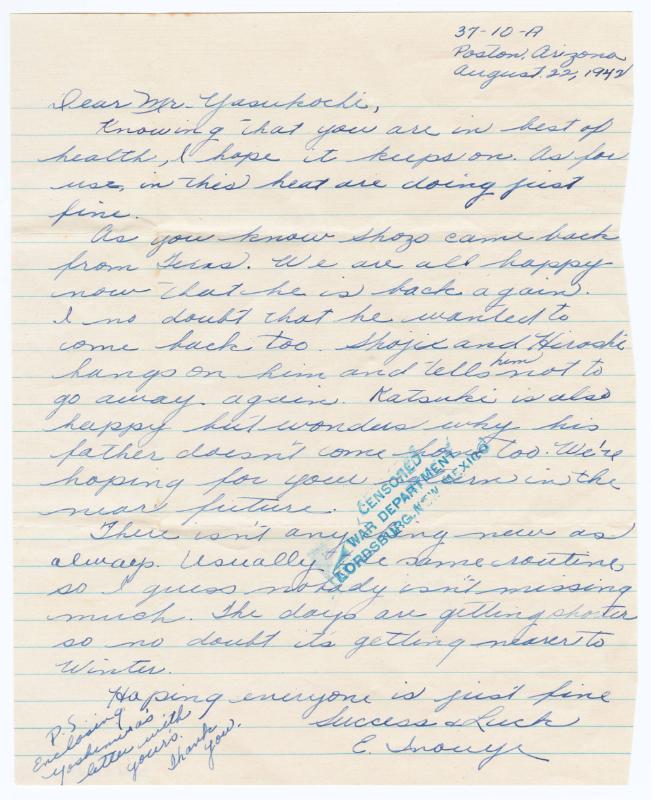 37-10-A
Poston, Arizona
August 22, 1942
Dear Mr. Yasukochi,
Knowing that you are in best of
health, I hope it keeps on. As for
use, in this heat are doing just
fine.
As you know Shozo came back
from Texas. We are all happy
now that he is back again.
I no doubt that he wanted to
come back too. Shoji and Hiroshi
hangs on him and tells him not to
go away again. Katsuki is also
happy but wonders why his
father doesn't come home too. We're
hoping for your return in the
near future.
There isn't anything new as
always. Usually the same routine,
so I guess nobody isn't missing
much. The days are getting shorter
so no doubt its getting nearer to
Winter.
Hoping everyone is just fine
Success & Luck
E. Inouye
P.S.
Enclosing
Yoshimira's
letter with
your's.
Thank
you.
CENSORED
WAR DEPARTMENT
LORDSBURG, NEW MEXICO